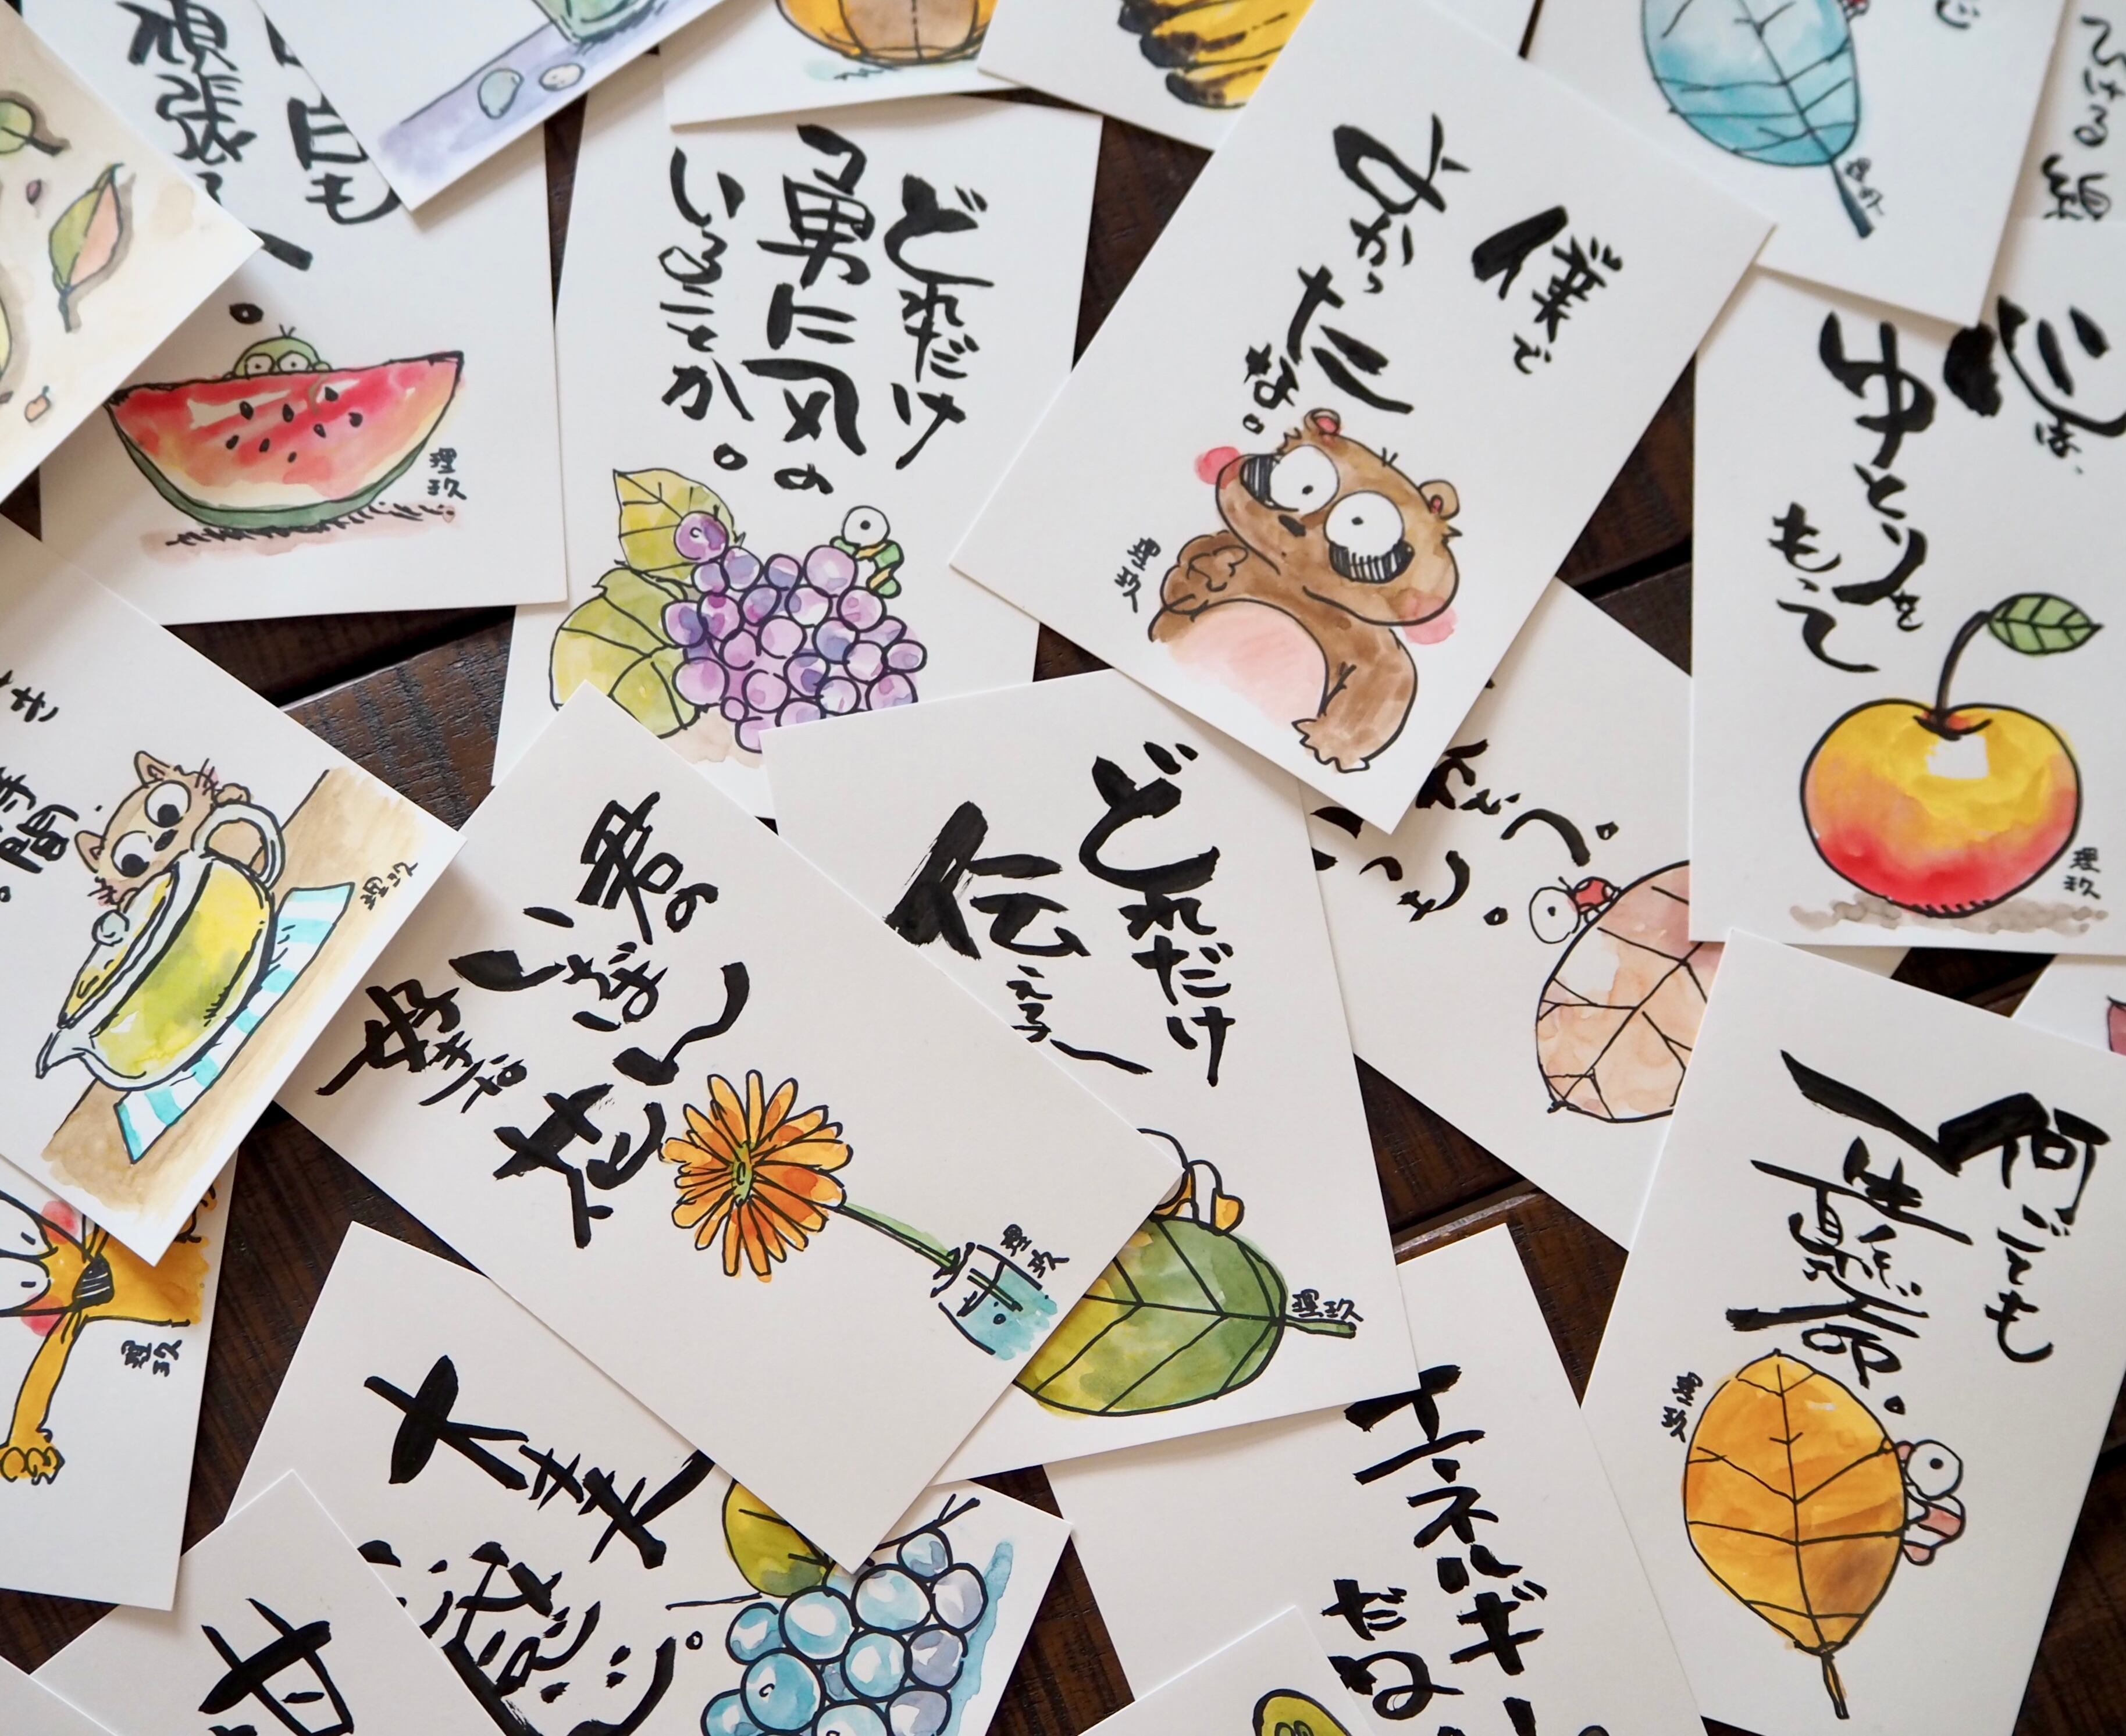 頑張
日も
理玖
どれだけ
勇気の
いることか。
理玖
僕で
よかった
な。
理玖
理玖
ひける
心は、
ゆとりを
もって
理玖
時間
理玖
君の
いちばん
好きな
花
理玖
どれだけ
伝える
理玖
何ごとも
一生懸命。
理玖
理玖
大きな
感じ。
エネルギー
だね
甘